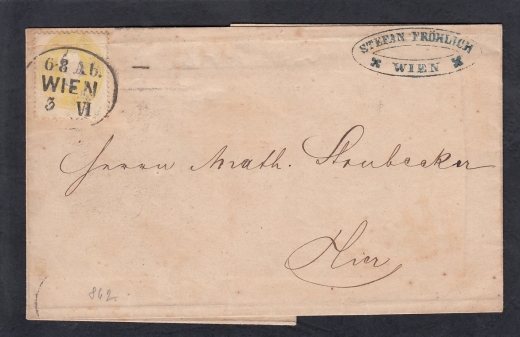 6-8 Ab.
WIEN
3 VI
STEFAN FRÖHLICH
WIEN
Herrn Math. Stoubecker
Hier
862